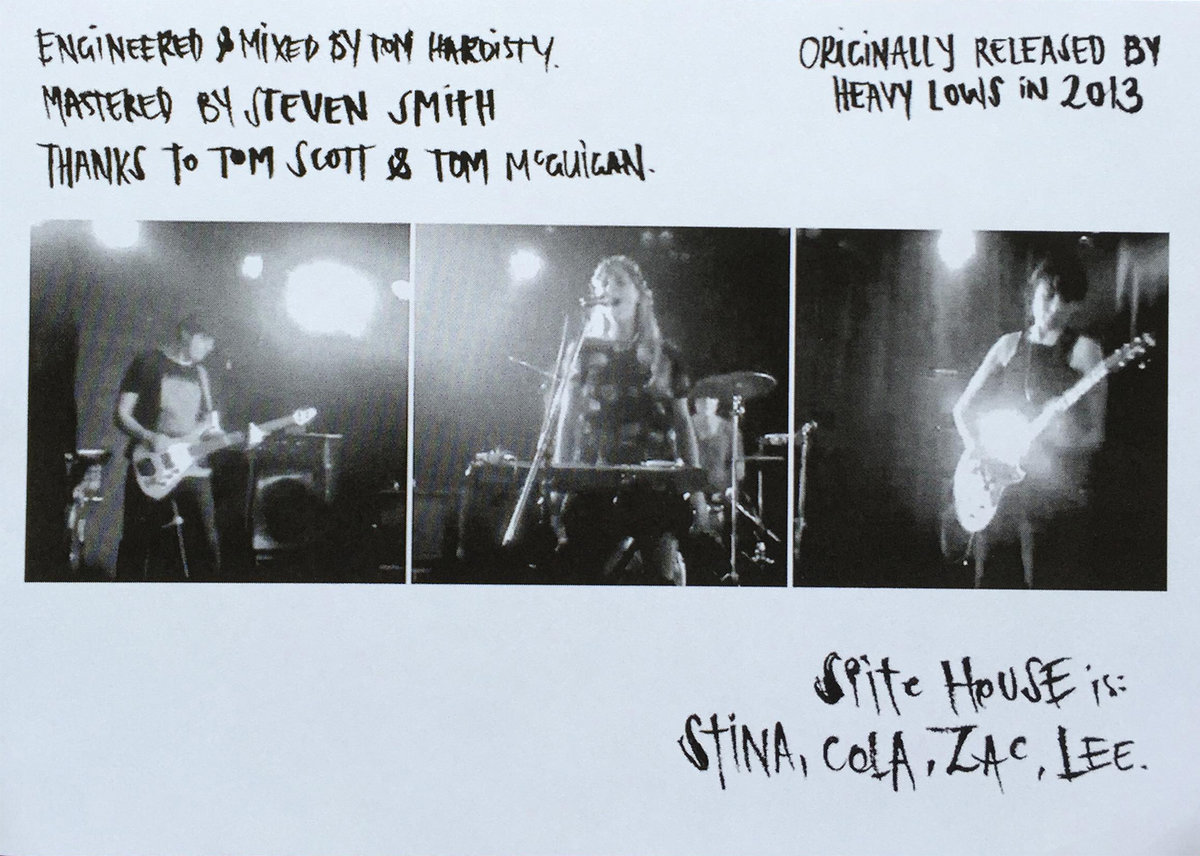 ENGINEERED & MIXED BY TOM HARDISTY.
MASTERED BY STEVEN SMITH
THANKS TO TOM SCOTT & TOM McGUIGAN.
ORIGINALLY RELEASED BY
HEAVY LOWS iN 2013
SPiTe HOUSE is:
STiNA, COLA, ZAC, LEE.